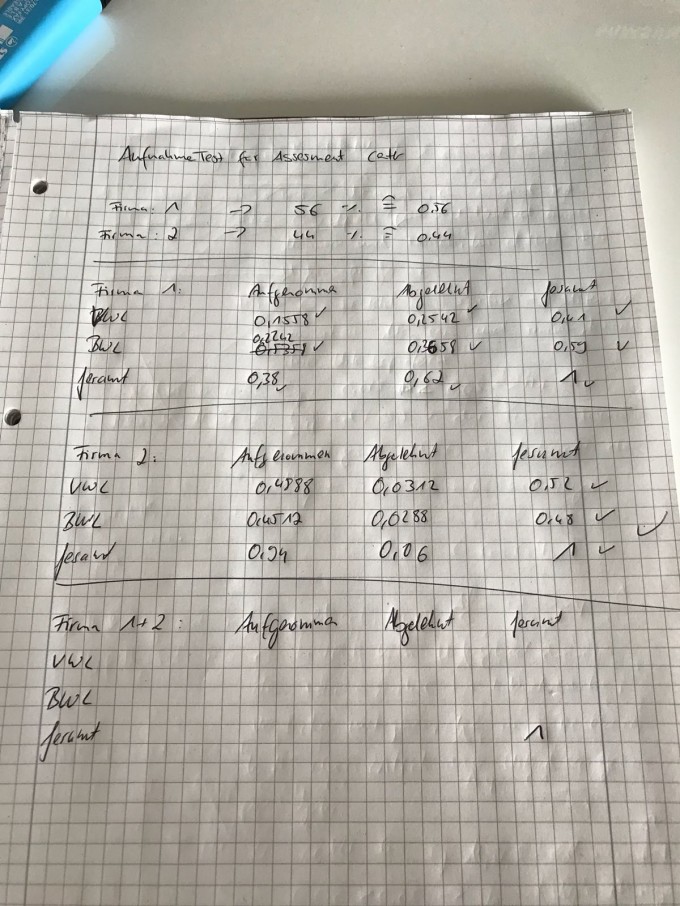 Aufnahme Test for Assesment Catr
Firma: 1 → 56 % ≙ 0,56
Firma: 2 → 44 % ≙ 0,44
Firma 1: Aufgenomma Abgelehnt Gesamt
VWL 0,1558 ✓ 0,2542 ✓ 0,41 ✓
0,2242
BWL ✓ 0,3658 ✓ 0,59 ✓
Gesamt 0,38 ✓ 0,62 ✓ 1 ✓
Firma 2: Aufgenommen Abgelehnt Gesamt
VWL 0,4888 0,0312 0,52 ✓
BWL 0,4512 0,0288 0,48 ✓ ✓
Gesamt 0,94 0,06 1 ✓
Firma 1+2: Aufgenommen Abgelehnt Gesamt
VWL
BWL
Gesamt 1